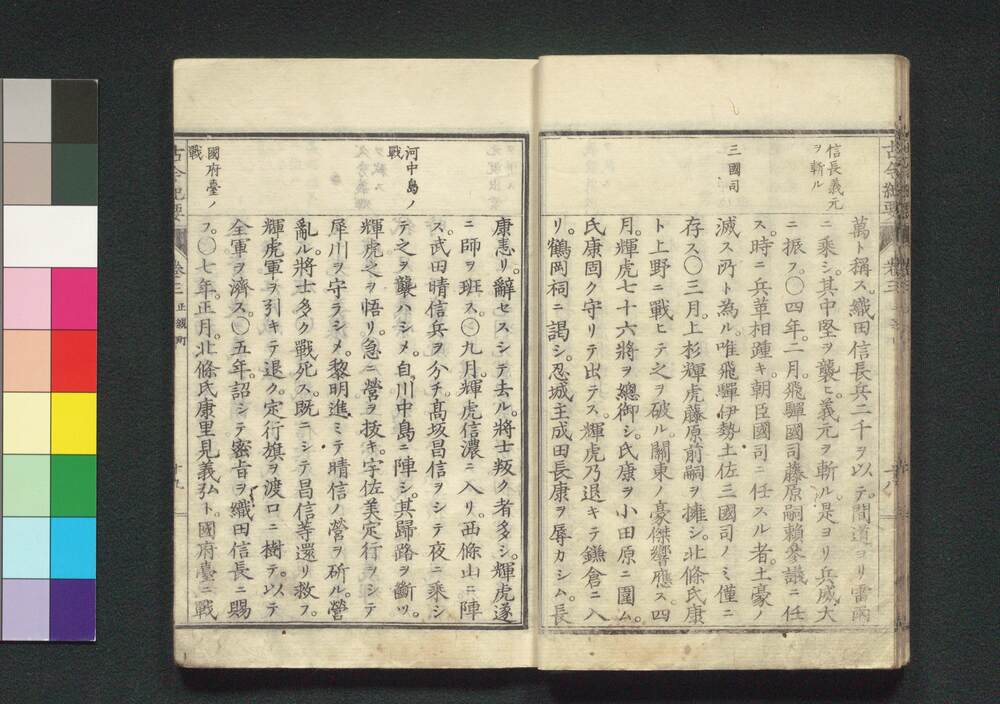 信長義元
ヲ斬ル
三國司
萬ト稱ス。織田信長兵二千ヲ以テ。間道ヨリ雷雨
ニ乘シ。其中堅ヲ襲ヒ義元ヲ斬ル。是ヨリ兵威大
ニ振フ。〇四年。二月。飛驒國司藤原嗣頼參議ニ任
ス。時ニ兵革相踵キ。朝臣國司ニ任スル者。土豪ノ
滅ス所ト為ル。唯飛驒伊勢土佐三國司ノミ僅ニ
存ス。〇三月。上杉輝虎藤原前嗣ヲ擁シ。北條氏康
ト上野ニ戰ヒテ之ヲ破ル。關東ノ豪傑響應ス。四
月。輝虎七十六將ヲ總御シ。氏康ヲ小田原ニ圍ム。
氏康固ク守リテ出テス。輝虎乃退キテ鎌倉ニ入
リ。鶴岡祠ニ謁シ。忍城主成田長康ヲ辱カシム。長
河中島ノ
戰
國府臺ノ
戰
康恚リ。辭セスシテ去ル。將士叛ク者多シ。輝虎遂
ニ師ヲ班ス。〇九月。輝虎信濃ニ入リ。西條山ニ陣
ス。武田晴信兵ヲ分チ。高坂昌信ヲシテ夜ニ乘シ
テ之ヲ襲ハシメ。自川中島ニ陣シ。其歸路ヲ斷ツ。
輝虎之ヲ悟リ。急ニ營ヲ拔キ。宇佐美定行ヲシテ
犀川ヲ守ラシメ。黎明進ミテ晴信ノ營ヲ斫ル。營
亂ル。將士多ク戰死ス。既ニシテ昌信等還リ救フ。
輝虎軍ヲ引キテ退ク。定行旗ヲ渡口ニ樹テ。以テ
全軍ヲ濟ス。〇五年。詔シテ密旨ヲ織田信長ニ賜
フ。〇七年。正月。北條氏康里見義弘ト。國府臺ニ戰
古今紀要
卷三
十九